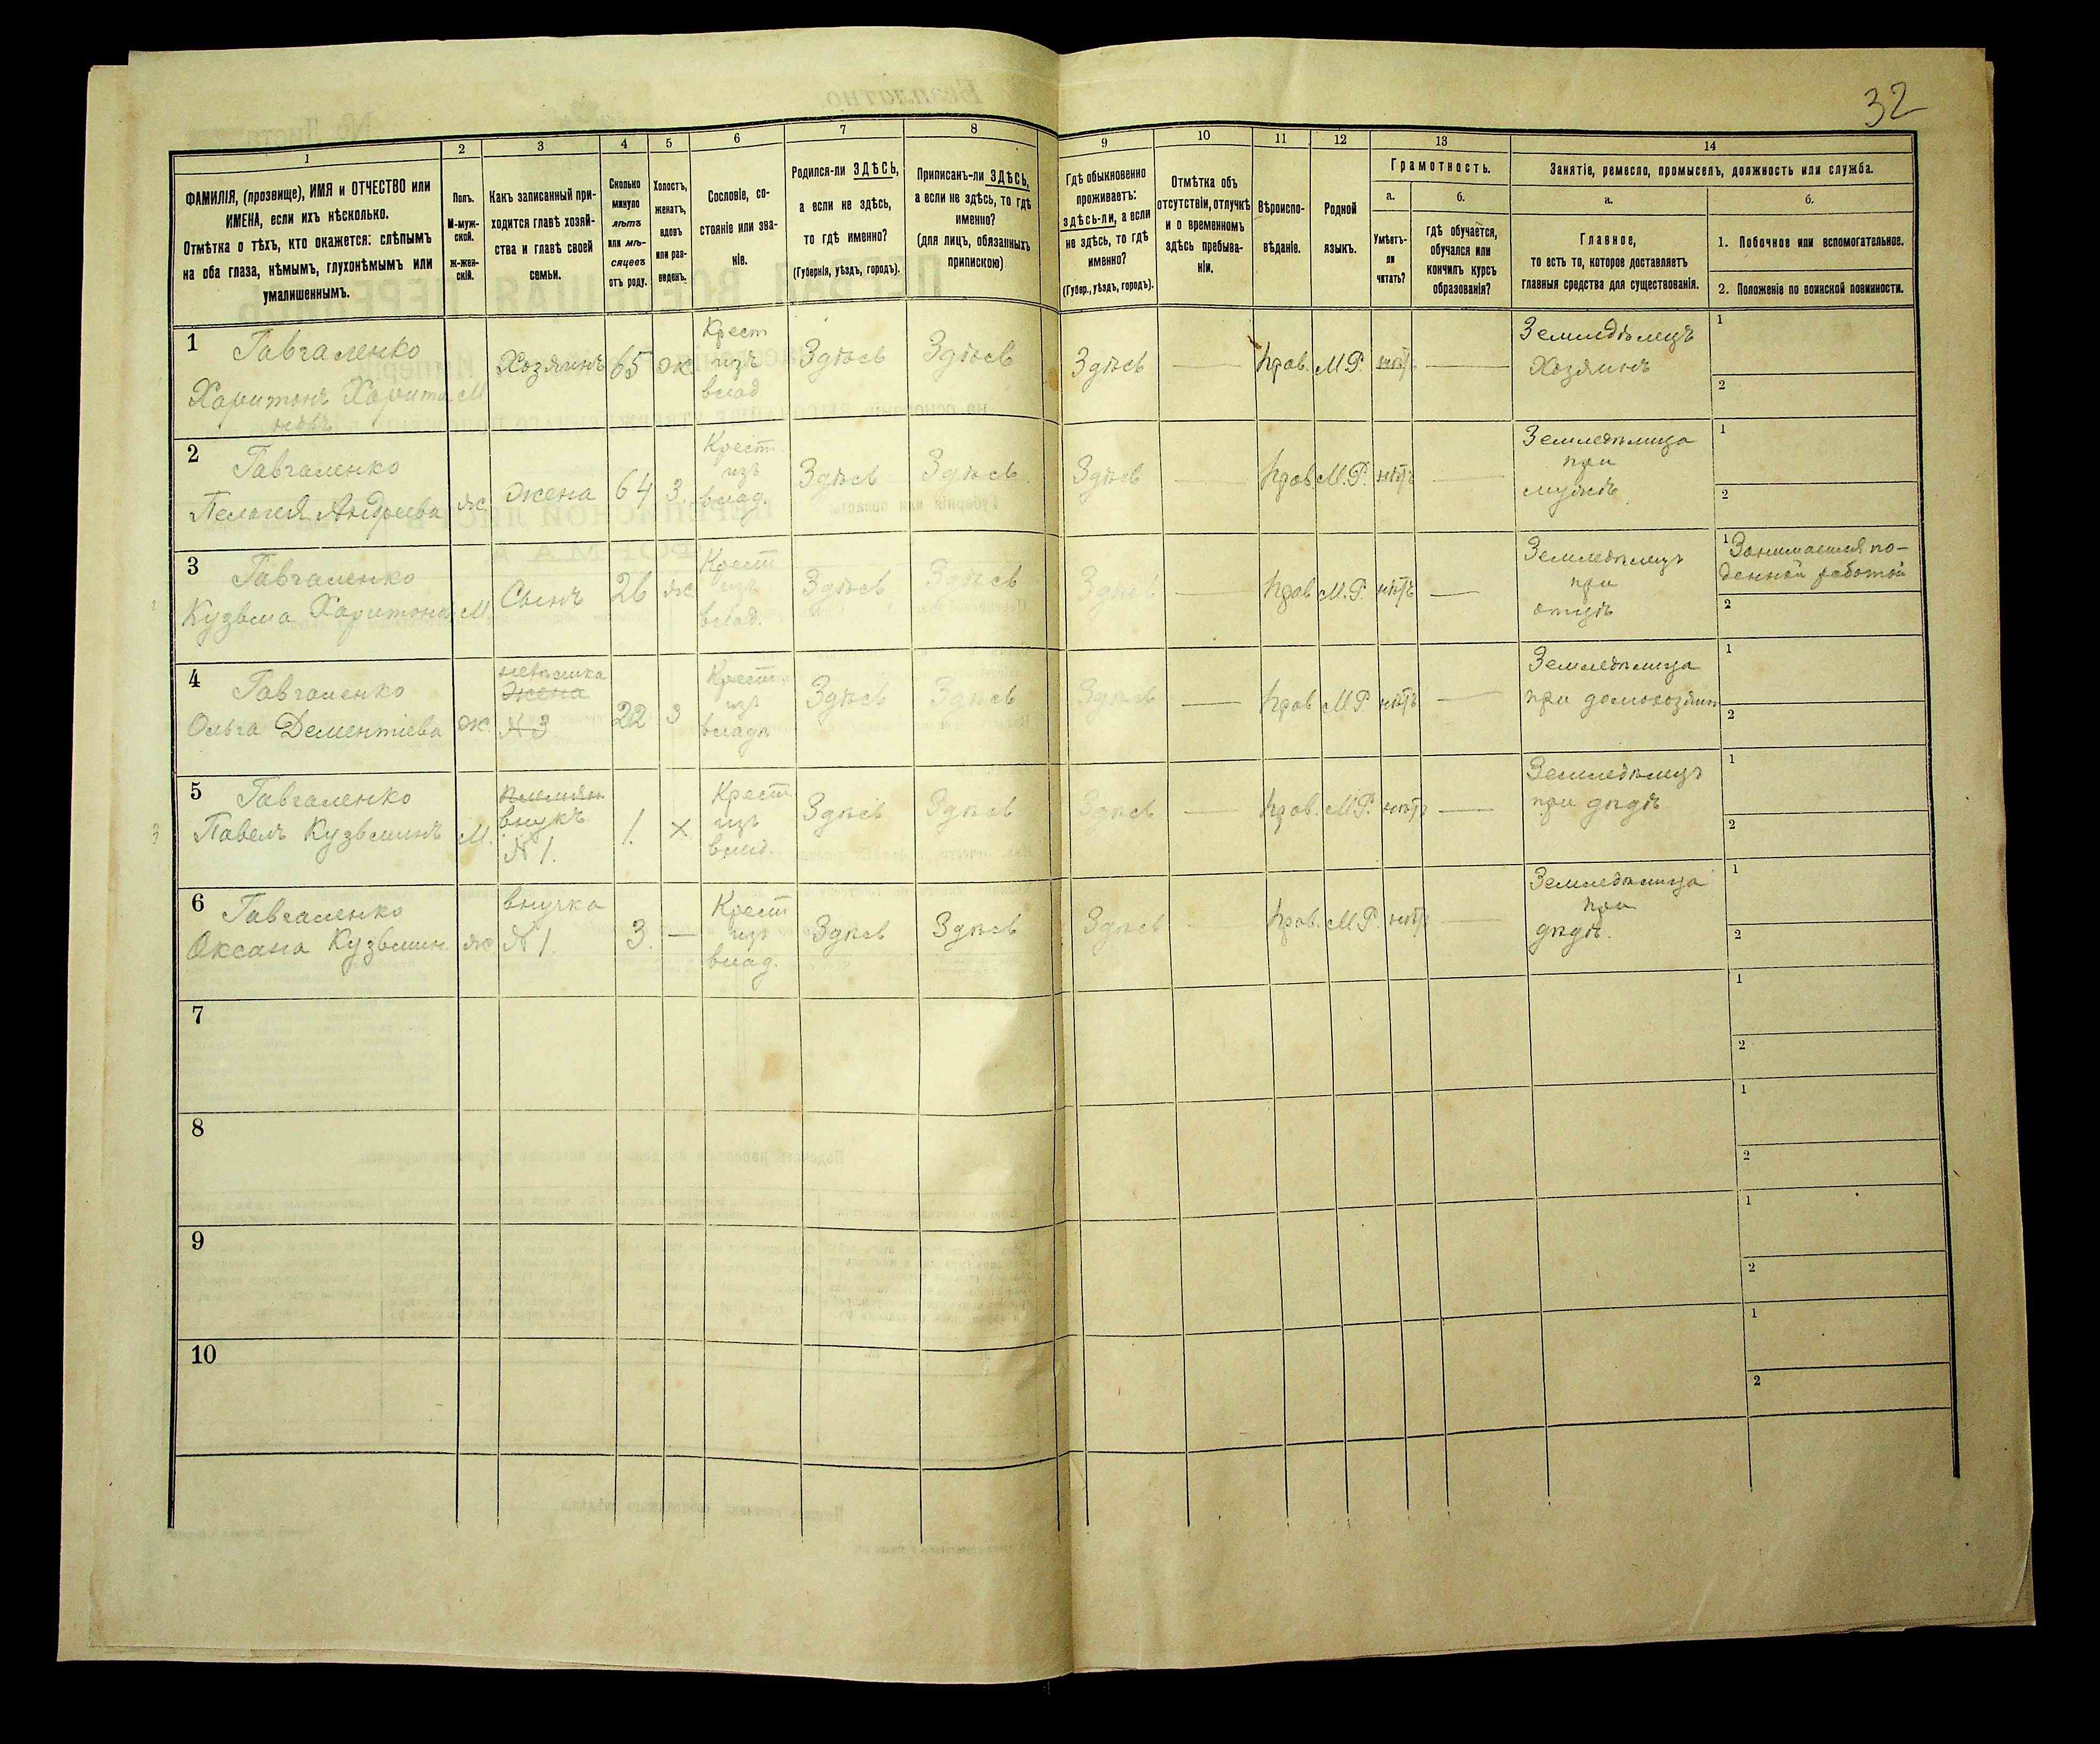 32
1
2
3
4
5
6
7
8
9
10
11
12
13
14
ФАМИЛІЯ, (прозвище), ИМЯ и ОТЧЕСТВО или
ИМЕНА, если ихъ нѣсколько.
Отмѣтка о тѣхъ, кто окажется: слѣпымъ
на оба глаза, нѣмымъ, глухонѣмымъ или
умалишеннымъ.
Полъ.
М-муж-
ской.
ж-жен-
скій.
Какъ записанный при-
ходится главѣ хозяй-
ства и главѣ своей
семьи.
Сколько
минуло
лѣтъ
или мѣ-
сяцевъ
отъ роду.
Холостъ,
женатъ,
вдовъ
или раз-
веденъ.
Сословіе, со-
стояніе или зва-
ніе.
Родился-ли ЗДѢСЬ,
а если не здѣсь,
то гдѣ именно?
(Губернія, уѣздъ, городъ).
Приписанъ-ли ЗДѢСЬ,
а если не здѣсь, то гдѣ
именно?
(для лицъ, обязанныхъ
припискою)
Гдѣ обыкновенно
проживаетъ:
здѣсь-ли, а если
не здѣсь, то гдѣ
именно?
(Губер., уѣздъ, городъ).
Отмѣтка объ
отсутствіи, отлучкѣ
и о временномъ
здѣсь пребыва-
ніи.
Вѣроиспо-
вѣданіе.
Родной
языкъ.
Грамотность.
а.
Умѣетъ-
ли
читать?
б.
гдѣ обучается,
обучался или
кончилъ курсъ
образованія?
Занятіе, ремесло, промыселъ, должность или служба.
а.
Главное,
то есть то, которое доставляетъ
главныя средства для существованія.
б.
1. Побочное или вспомогательное.
2. Положеніе по воинской повинности.
1
Гавчаленко
Харитонъ Харито
новъ
М
Хозяинъ
65
ж
Крест
изъ
влад
Здѣсь
Здѣсь
Здѣсь
—
прав.
М.Р.
нѣтъ
—
Земледѣлецъ
Хозяинъ
1
2
2
Гавчаленко
Пелагея Андреева
ж.
жена
64
з.
Крест.
изъ
влад.
Здѣсь
Здѣсь
Здѣсь
—
прав.
М.Р.
нѣтъ
—
Земледѣлица
при
мужѣ
1
2
3
Гавчаленко
Кузьма Харитонов
М.
Сынъ
26
ж.
Крест
изъ
влад.
Здѣсь
Здѣсь
Здѣсь
—
прав
М.Р.
нѣтъ
—
Земледѣлецъ
при
отцѣ
1 Занимается по-
денной работой
2
4
Гавчаленко
Ольга Дементіева
ж.
невѣстка
жена
№ 3
22
з
Крест.
изъ
влад
Здѣсь
Здѣсь
Здѣсь
—
прав
М.Р
нѣтъ
—
Земледѣлица
при домохозяин
1
2
5
Гавчаленко
Павелъ Кузьминъ
М.
племян
внукъ
№ 1.
1.
х
Крест.
изъ
влад.
Здѣсь
Здѣсь
Здѣсь
—
прав.
М.Р.
нѣтъ
—
Земледѣлецъ
при дѣдѣ
1
2
6
Гавчаленко
Оксана Кузьмин.
ж.
внучка
№ 1.
3.
—
Крест
изъ
влад.
Здѣсь
Здѣсь
Здѣсь
—
прав.
М.Р.
нѣтъ
—
Земледѣлица
при
дѣдѣ.
1
2
7
1
2
8
1
2
9
1
2
10
1
2